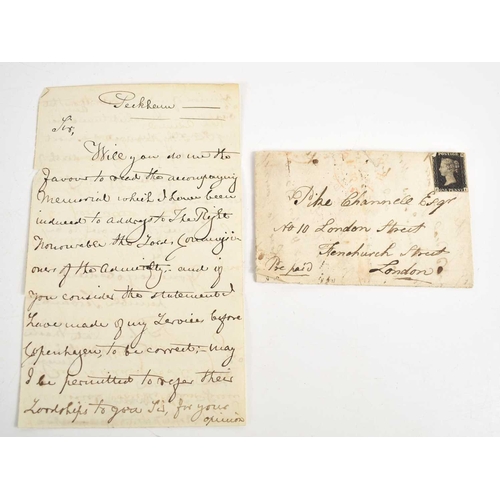 Peckham
Sir,
Will you do me the
favour to read the accompanying
Memorial which I have been
induced to address to The Right
Honourable the Lords Commission
oners of the Admiralty – and if
you consider the statement I
have made of my Service before
Copenhagen, to be correct, – may
I be permitted to refer their
Lordships to you Sir, for your
opinion
POSTAGE
Pike Channell Esqr
No 10 London Street
Fenchurch Street
London